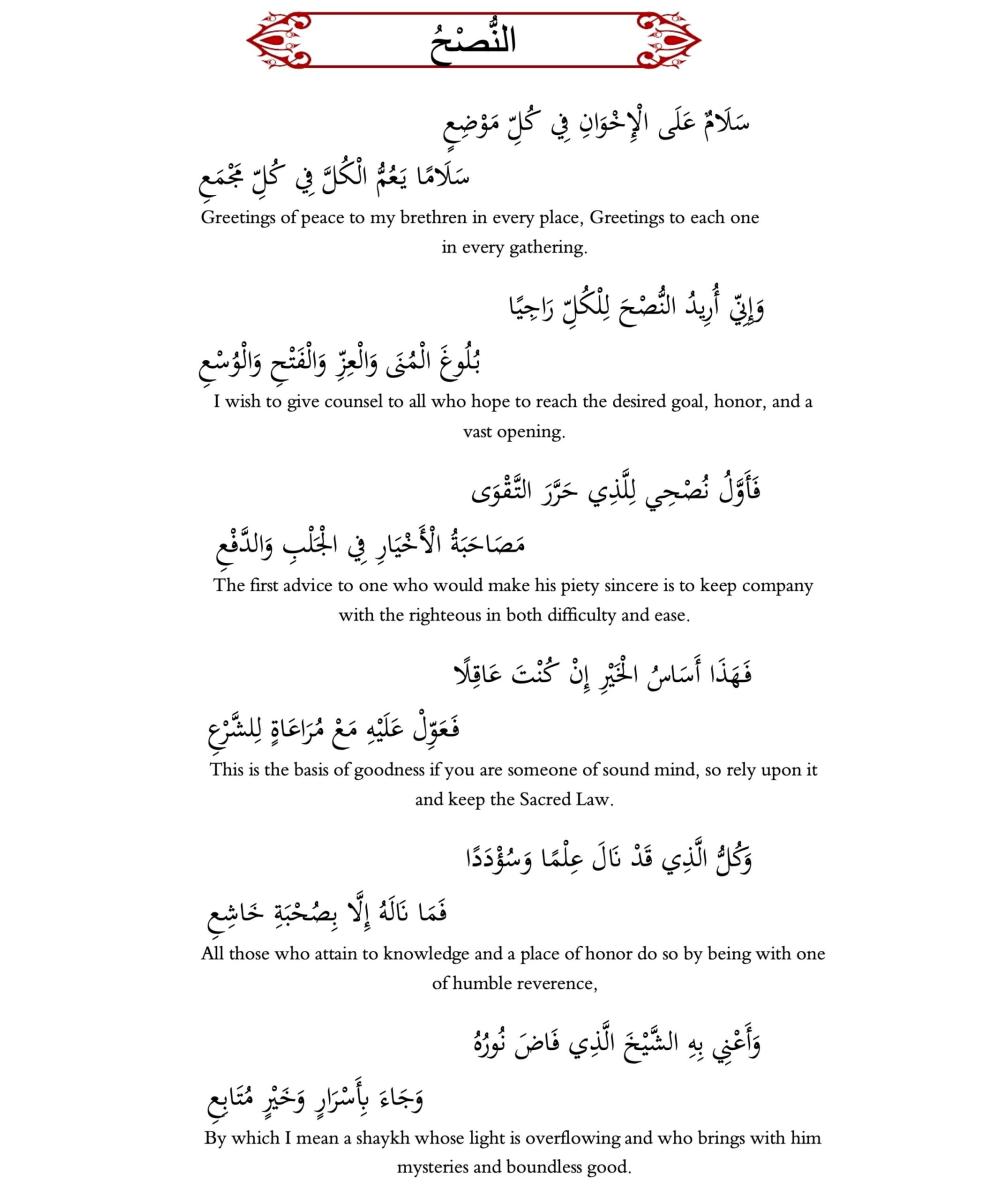 النُّصْحُ
سَلَامٌ عَلَى الْإِخْوَانِ فِي كُلِّ مَوْضِعٍ
سَلَامًا يَعُمُّ الْكُلَّ فِي كُلِّ مَجْمَعِ
Greetings of peace to my brethren in every place, Greetings to each one
in every gathering.
وَإِنِّي أُرِيدُ النُّصْحَ لِلْكُلِّ رَاجِيًا
بُلُوغَ الْمُنَى وَالْعِزِّ وَالْفَتْحِ وَالْوُسْعِ
I wish to give counsel to all who hope to reach the desired goal, honor, and a
vast opening.
فَأَوَّلُ نُصْحِي لِلَّذِي حَرَّرَ التَّقْوَى
مَصَاحَبَةُ الْأَخْيَارِ فِي الْجَلْبِ وَالدَّفْعِ
The first advice to one who would make his piety sincere is to keep company
with the righteous in both difficulty and ease.
فَهَذَا أَسَاسُ الْخَيْرِ إِنْ كُنْتَ عَاقِلًا
فَعَوِّلْ عَلَيْهِ مَعْ مُرَاعَاةٍ لِلشَّرْعِ
This is the basis of goodness if you are someone of sound mind, so rely upon it
and keep the Sacred Law.
وَكُلُّ الَّذِي قَدْ نَالَ عِلْمًا وَسُؤْدَدًا
فَمَا نَالَهُ إِلَّا بِصُحْبَةِ خَاشِعِ
All those who attain to knowledge and a place of honor do so by being with one
of humble reverence,
وَأَعْنِي بِهِ الشَّيْخَ الَّذِي فَاضَ نُورُهُ
وَجَاءَ بِأَسْرَارٍ وَخَيْرٍ مُتَابِعِ
By which I mean a shaykh whose light is overflowing and who brings with him
mysteries and boundless good.